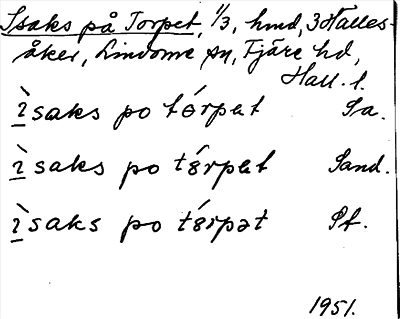 Isaks på Torpet, 1/3, hmd, 3 Halles-
åker, Lindome sn, Fjäre hd,
Hall. l.
ı̀saks po tɵ́rpet Sa.
ı̀saks po tɵ́rpet Sand.
ı̀saks po tɵ́rpət Pf.
1951.